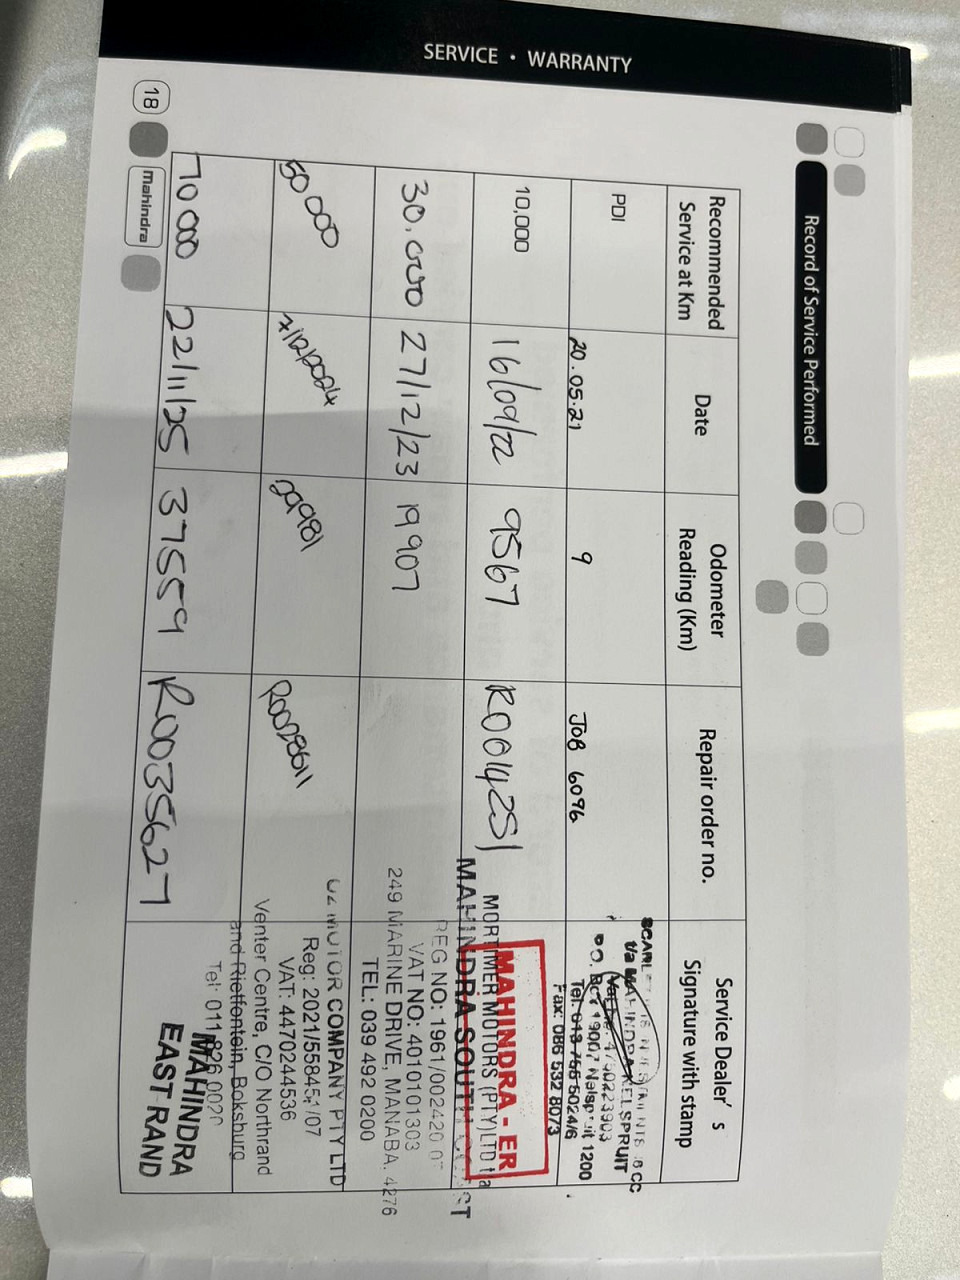 SERVICE • WARRANTY
Record of Service Performed
Recommended Service at Km
Date
Odometer Reading (Km)
Repair order no.
Service Dealer's Signature with stamp
PDI
20.05.21
9
JOB 6096
P.O. Box 19007 Nelspruit 1200
Tel: 013 755 5024/6
Fax: 086 532 8073
10,000
16/09/22
9567
R0014251
MAHINDRA - ER
30.000
27/12/23
19907
MORTIMER MOTORS (PTY) LTD t/a
MAHINDRA SOUTH COAST
REG NO: 1961/002420/07
VAT NO: 4010101303
249 MARINE DRIVE, MANABA. 4276
TEL: 039 492 0200
50 000
/12/2024
29981
R0028611
MOTOR COMPANY PTY LTD
Reg: 2021/558451/07
VAT: 4470244536
Venter Centre, C/O Northrand
and Rietfontein, Boksburg
Tel: 011 826 0020
70 000
22/11/25
37559
R0035627
MAHINDRA
EAST RAND
18
Mahindra